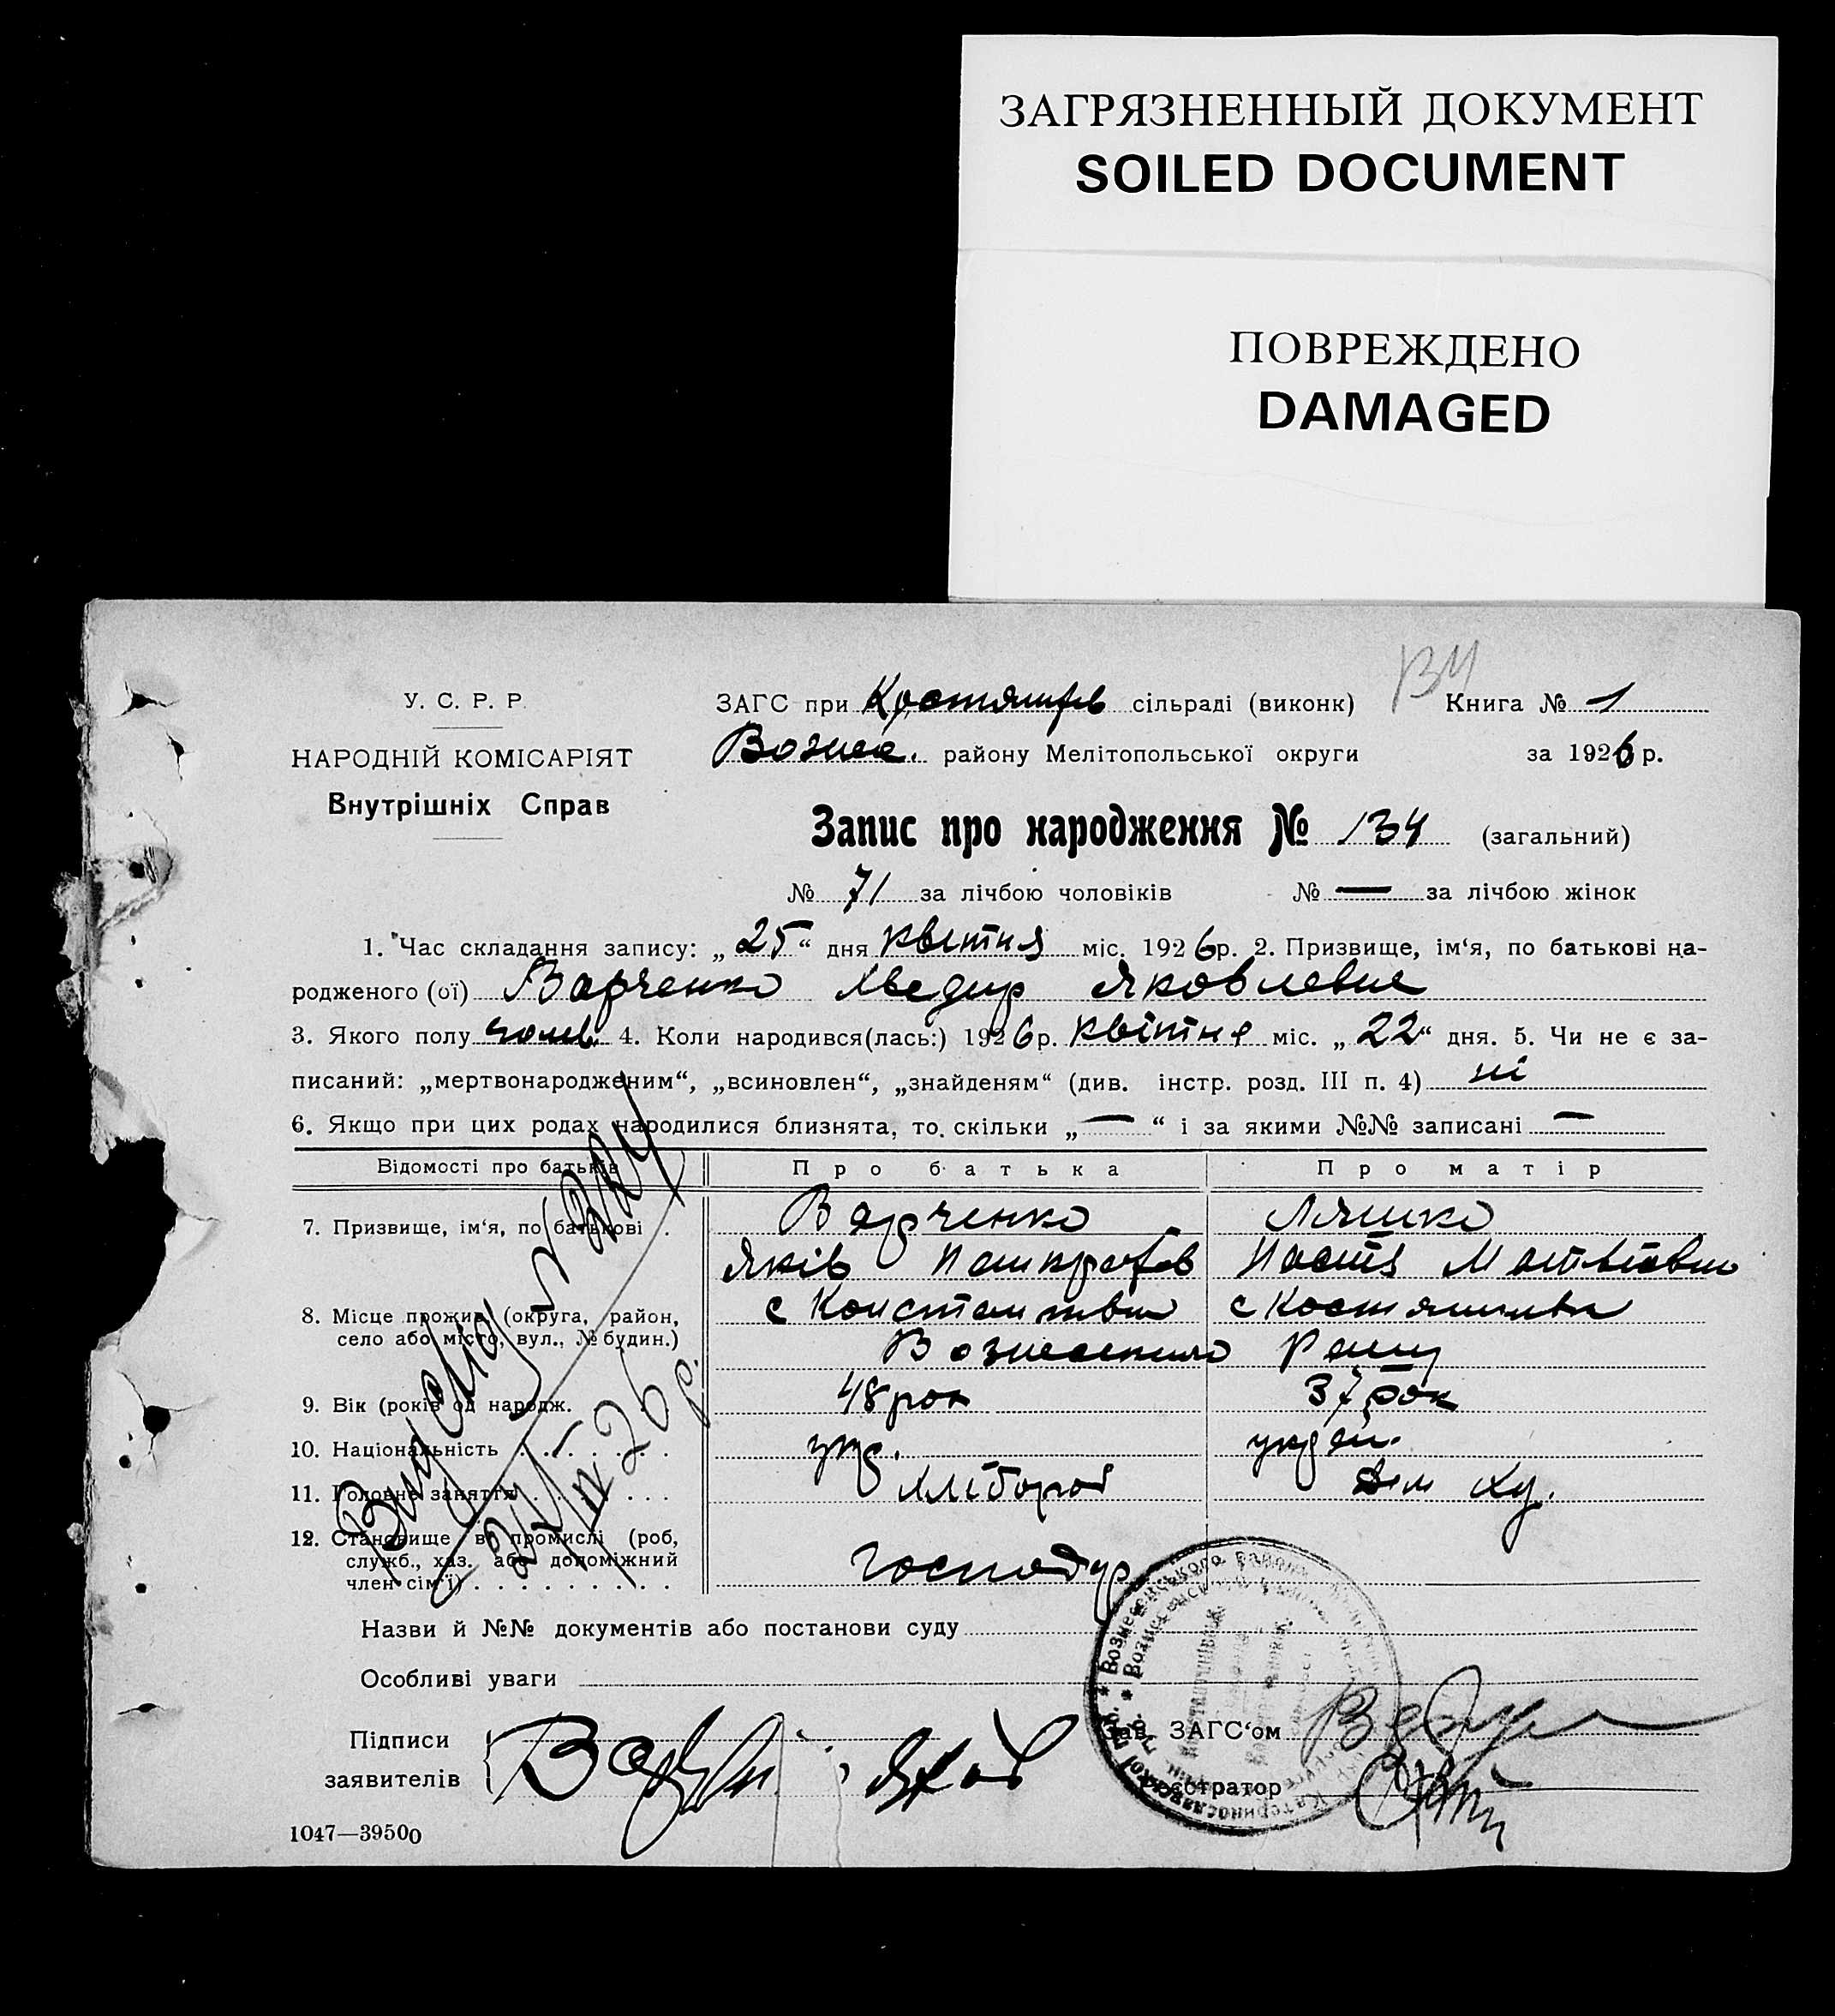 ЗАГРЯЗНЕННЫЙ ДОКУМЕНТ
SOILED DOCUMENT
ПОВРЕЖДЕНО
DAMAGED
У. С. Р. Р.
НАРОДНІЙ КОМІСАРІЯТ
Внутрішніх Справ
ЗАГС при сільраді (виконк) Книга № 1
Вознес. району Мелітопольської округи за 1926 р.
Запис про народження № 134 (загальний)
№ 71 за лічбою чоловіків № — за лічбою жінок
1. Час складання запису: „25“ дня квітня міс. 1926р. 2. Призвище, ім‘я, по батькові на-
родженого (ої) Варченко Хведир Яковлевич
3. Якого полу чолов. 4. Коли народився(лась:) 1926р. квітня міс. „22“ дня. 5. Чи не є за-
писаний: „мертвонародженим“, „всиновлен“, „знайденям“ (див. інстр. розд. III п. 4) ні
6. Якщо при цих родах народилися близнята, то. скільки „—“ і за якими №№ записані —
Відомості про батьків Про батька Про матір
7. Призвище, ім‘я, по батькові . Варченко Ляшко
Яків Панкратов Настя
8. Місце прожив. (округа, район, с с
село або місто, вул., № будин.) Вознесенського Рану
9. Вік (років од народж. 48 рок 37 рок
10. Національність . . . . . . . укр. україн.
11. Головне заняття . . . . . . . Хлібороб Дом Хд.
12. Становище в промислі (роб,
служб., хаз. або допоміжний Господар
член сім‘ї) . . . . . . . . .
Видслід № 3
24/IV 26 р.
Назви й №№ документів або постанови суду
Особливі уваги
Підписи
заявителів Яков
Зав. ЗАГС‘ом
Реєстратор
1047—39500